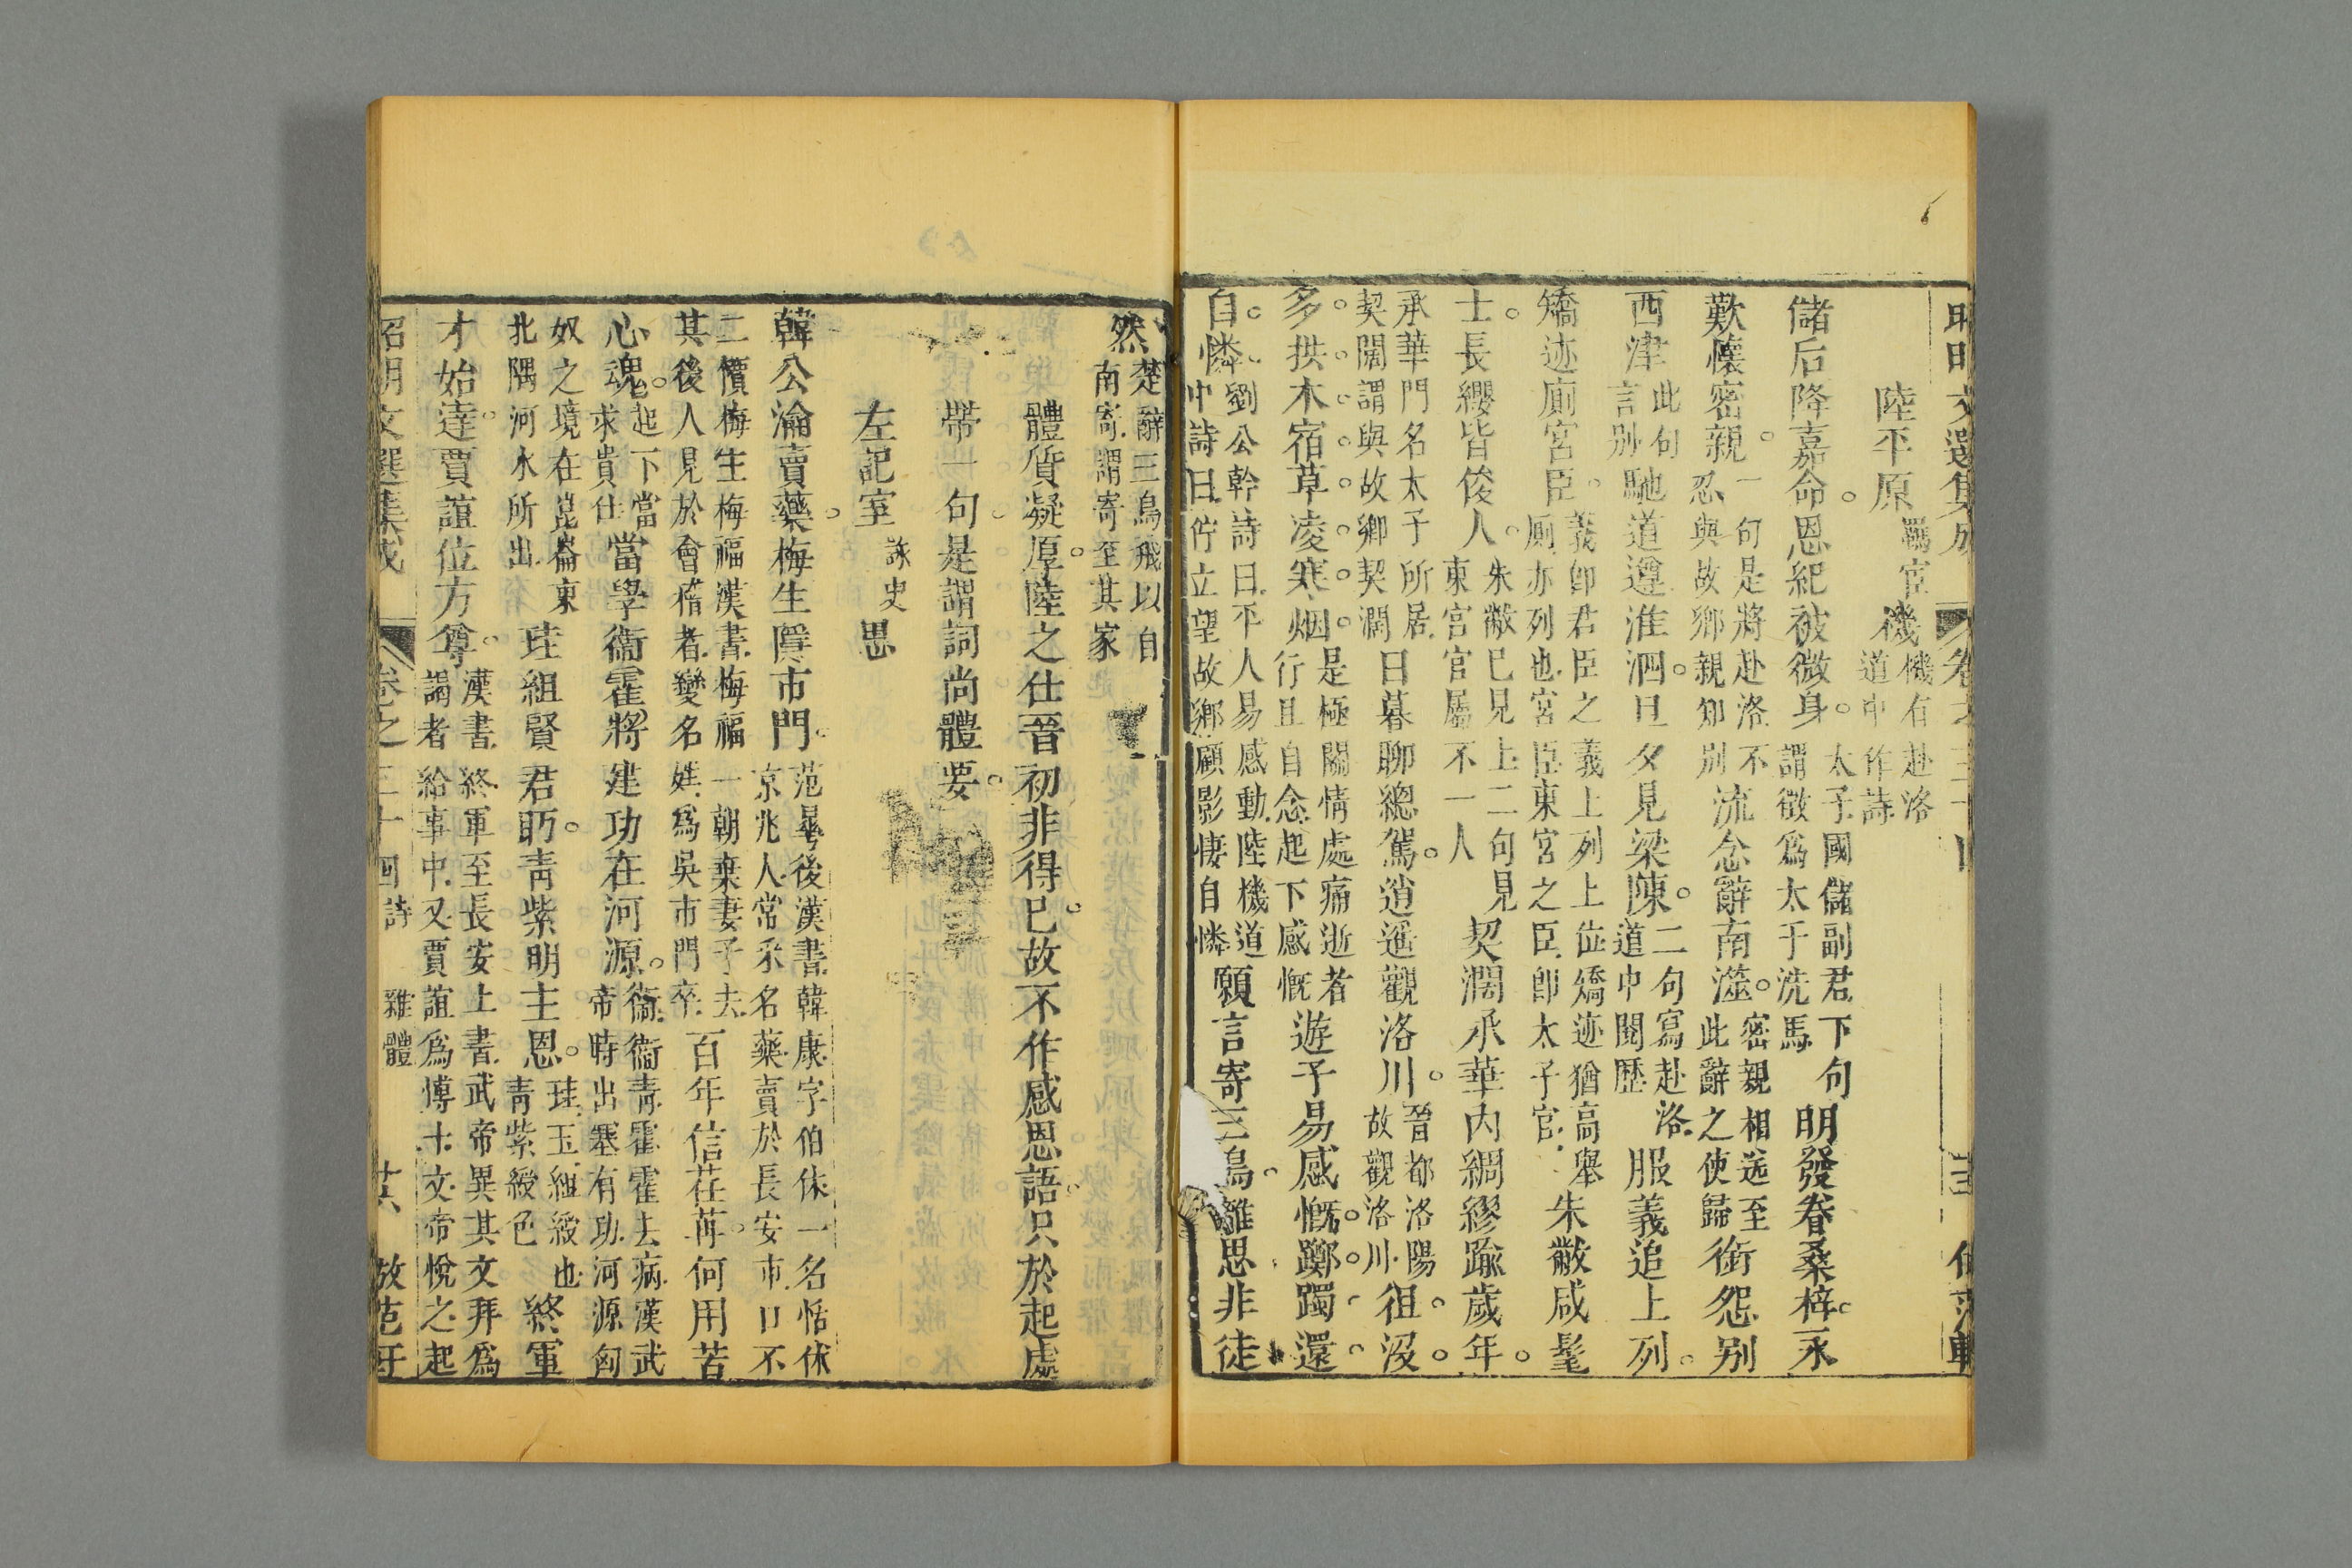 昭明文選集成 卷之三十
陸平原羈宦機機有赴洛道中作詩
儲后降嘉命恩紀被微身太子國儲副君下句謂徵爲太子洗馬明發眷桑梓永
歎懷密親一句是將赴洛不忍與故鄉親知別流念辭南澨密親相送至此辭之使歸銜怨別
西津此句言別馳道遵淮泗旦夕見梁陳二句寫赴洛道中閱歷服義追上列
矯迹廁宮臣義卽君臣之義上列上位矯迹猶高舉廁亦列也宮臣東宮之臣卽太子官朱黻咸髦
士長纓皆俊人朱黻已見上二句見東宮官屬不一人契濶承華內綢繆踰歲年
承華門名太子所居契闊謂與故鄉契濶日暮聊總駕逍遙觀洛川晉都洛陽故觀洛川徂沒
多拱木宿草凌寒烟是極關情處痛逝者行且自念起下感慨遊子易感慨躑躅還
自憐劉公幹詩曰平人易感動陸機道中詩曰佇立望故鄉顧影悽自憐願言寄三鳥離思非徒
然楚辭三鳥飛以自南寄謂寄至其家
體質凝厚陸之仕晉初非得已故不作感恩語只於起處
帶一句是謂詞尚體要
左記室詠史思
韓公瀹賣藥梅生隱市門范曄後漢書韓康字伯休一名恬休京兆人常采名藥賣於長安市口不
二價梅生梅福漢書梅福一朝棄妻子去其後人見於會稽者變名姓爲吳市門卒百年信荏苒何用苦
心魂起下當求貴仕當學衞霍將建功在河源衞衞靑霍霍去病漢武帝時出塞有功河源匈
奴之境在崑崙東北隅河水所出珪組賢君眄靑紫明主恩珪玉組綬也靑紫綬色終軍
才始達賈誼位方尊漢書終軍至長安上書武帝異其文拜爲謁者給事中又賈誼爲博士文帝悅之起
昭明文選集成 卷之三十回詩 雜體 廿六 倣范軒